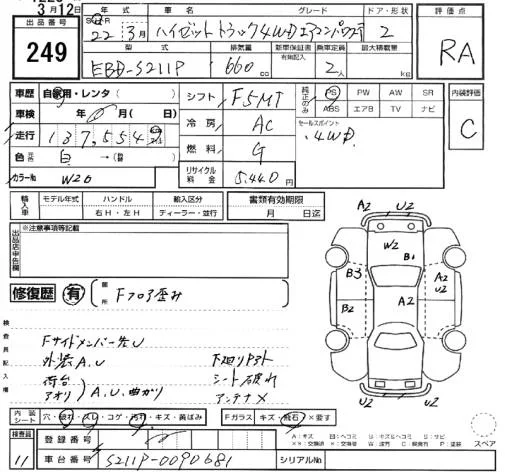 3月12日
出品番号
249
年式
22年 3月
車名
ハイゼットトラック4WDエアコンパワステ
グレード
ドア・形状
2
評価点
RA
型式
EBD-S211P
排気量
660cc
新車保証書
有無記入
乗車定員
2人
最大積載量
kg
車歴
自家用・レンタ( )
車検
年 月( 日)
走行
137,554
色
白
カラーNo
W20
シフト
F5MT
冷房
AC
燃料
G
リサイクル料金
5,440円
純正のみ
PS PW AW SR
ABS エアB TV ナビ
セールスポイント
・4WD
内装評価
C
輸入車
モデル年式
ハンドル
右H・左H
輸入区分
ディーラー・並行
書類有効期限
月 日迄
出品店申告欄
※注意事項等記載
修復歴
有
箇所
Fフロア歪み
A2 U2
W2
B1
B3
A2
U2
B2
A2
A2 U2
検査員記入欄
Fサイドメンバー先U
外装A,U
荷台
アオリ
A,U,曲がり
下廻りサビ
シート破れ
アンテナX
内装シート
穴・破れ・スレ・コゲ・汚れ・キズ・黄ばみ
Fガラス
キズ・飛石・X要す
スペア
検査員
11
登録番号
車台番号
S211P-0090681
シリアルNo